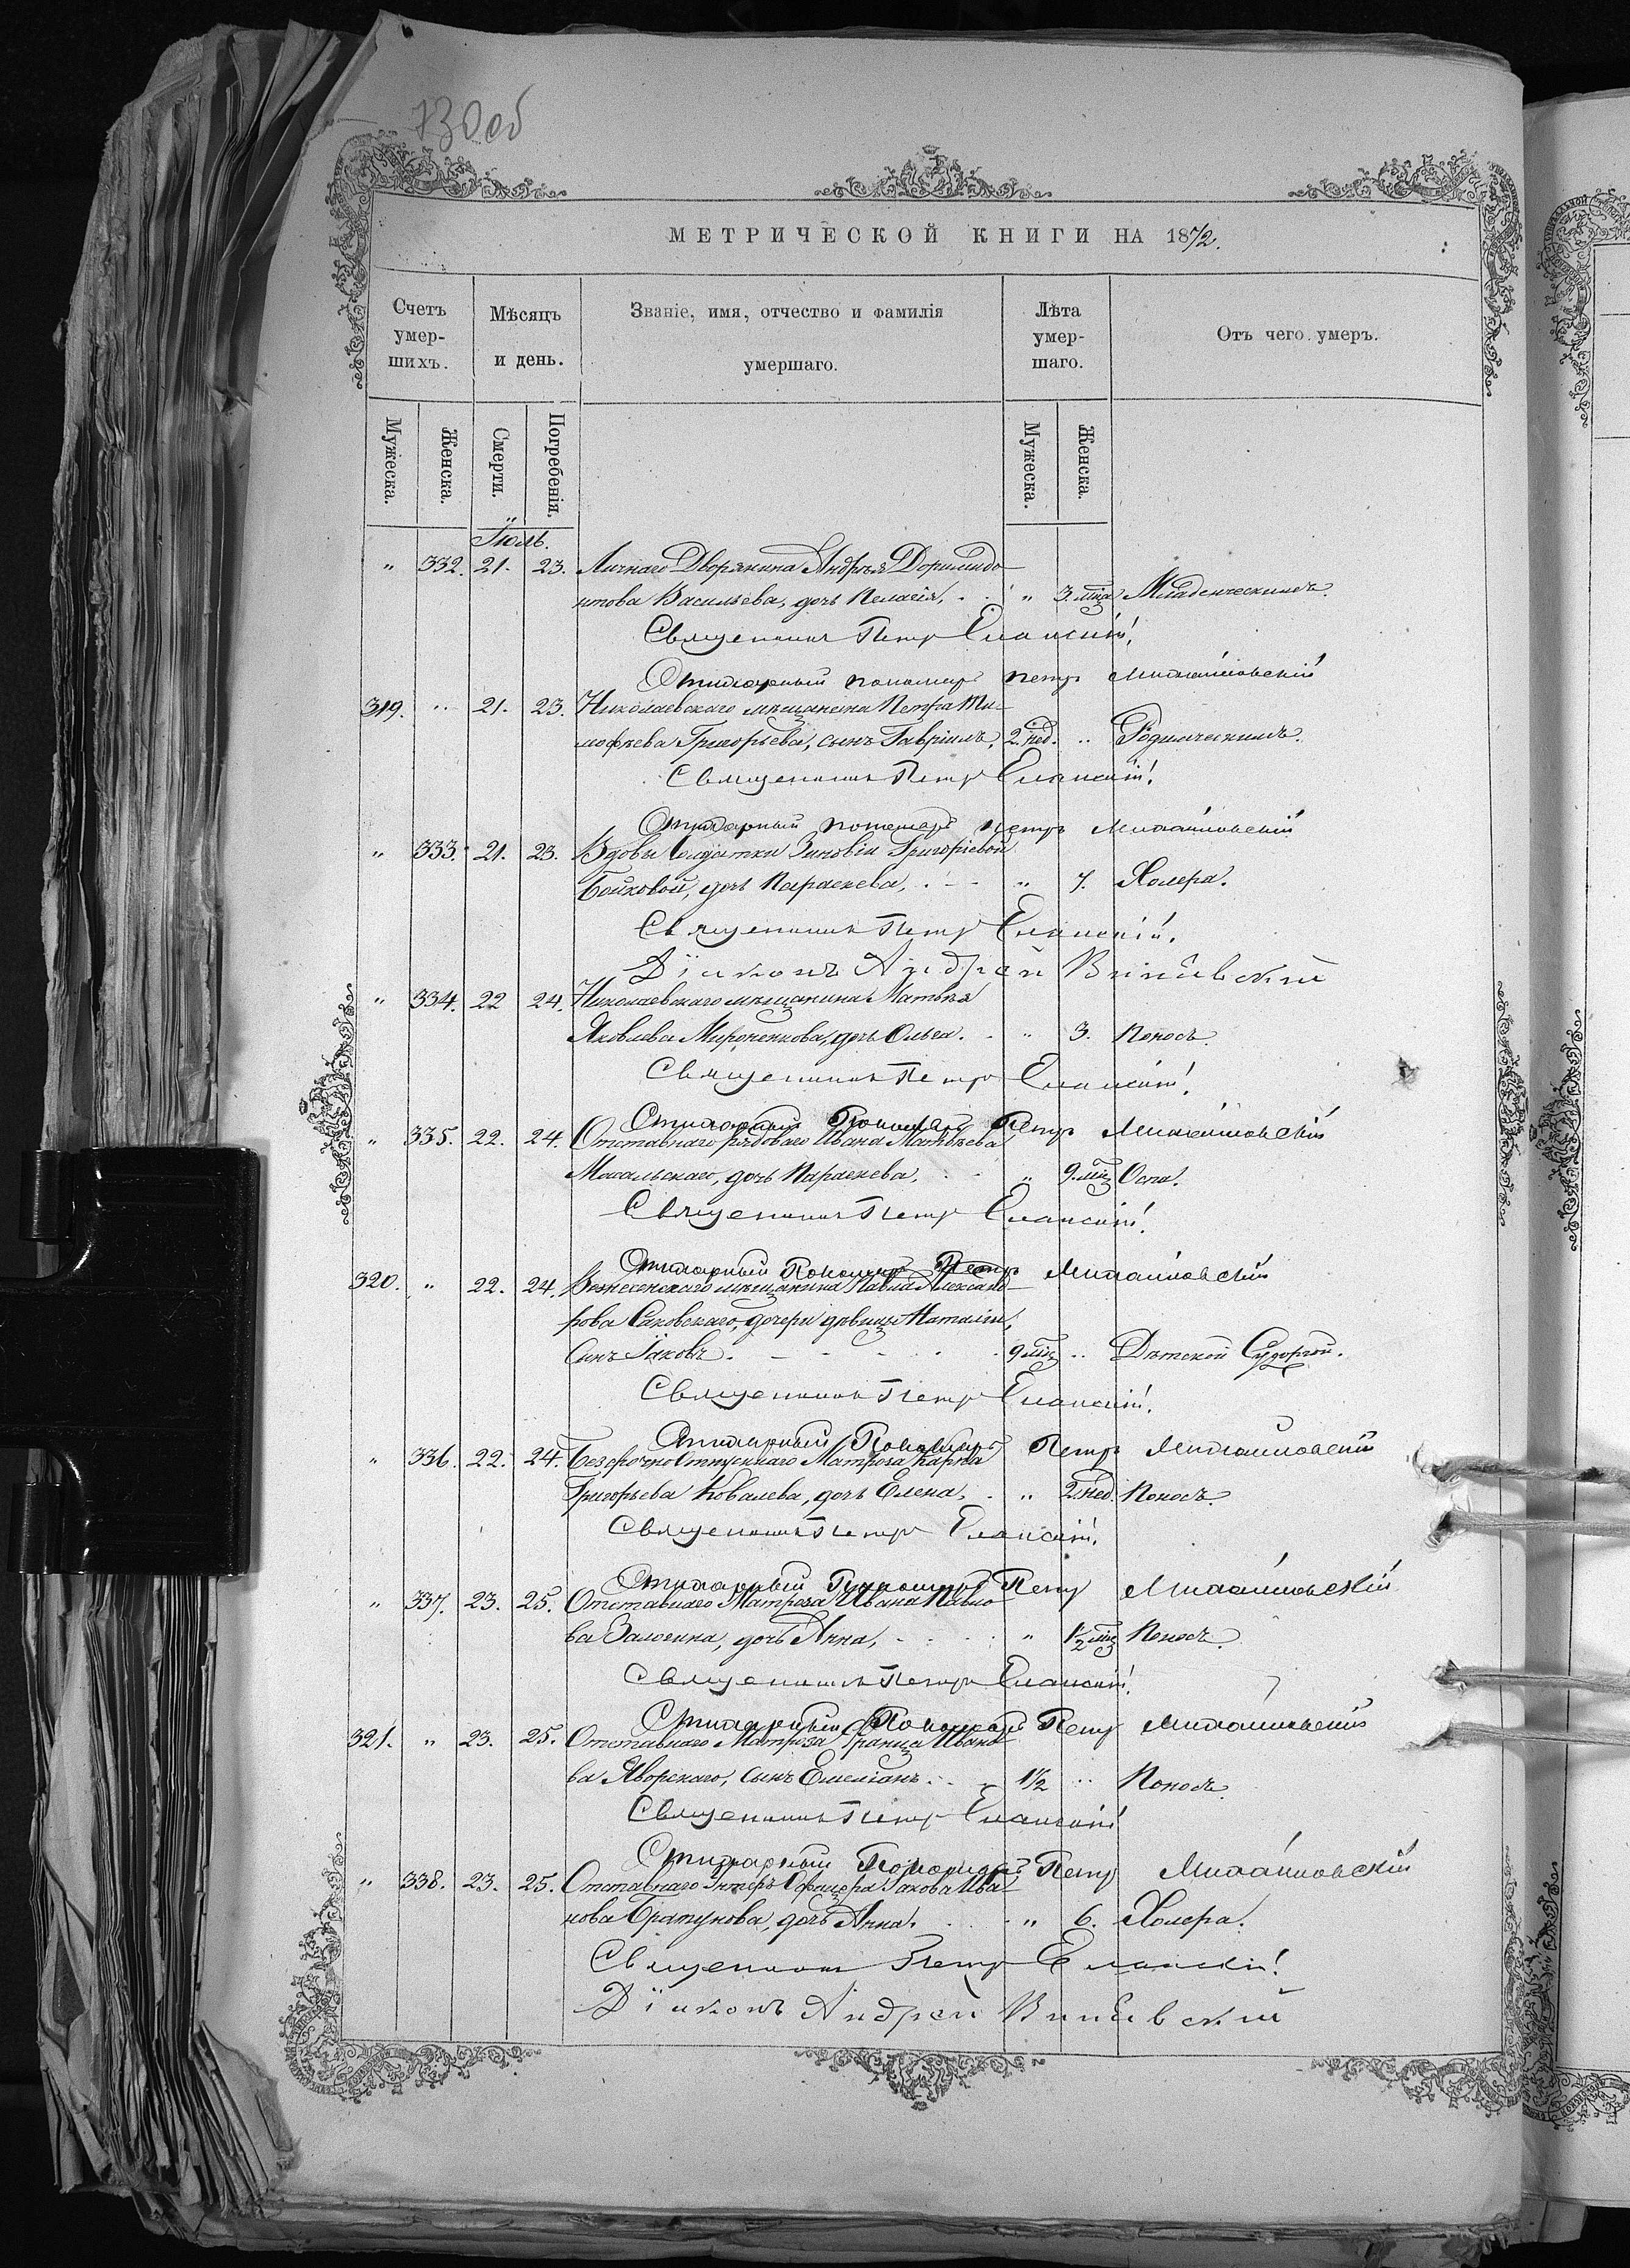 730об
МЕТРИЧЕСКОЙ КНИГИ НА 1872.
Счетъ умер-шихъ. Мѣсяцъ и день. Званіе, имя, отчество и фамилія умершаго. Лѣта умер-шаго. Отъ чего умеръ.
Мужеска. Женска. Смерти. Погребенія. Мужеска. Женска.
Іюль.
" 332. 21. 23. Личнаго Дворянина Андрѣя Доримидо-
нтова Васильева, дочь Пелагія, " 3. мца Младенческимъ.
Священникъ Петръ Еланскій.
Стихарный пономарь Петръ Михайловскій
319. " 21. 23. Николаевскаго мѣщанина Петра Ти-
мофѣева Григорьева, сынъ Гавріилъ, 2. нед. " Родимческимъ.
Священникъ Петръ Еланскій.
Стихарный пономарь Петръ Михайловскій
" 333. 21. 23. Вдовы Солдатки Зиновіи Григоріевой
Бойковой, дочь Параскева, " 7. Холера.
Священникъ Петръ Еланскій.
Діаконъ Андрей
" 334. 22 24. Николаевскаго мѣщанина Матвѣя
Яковлева Мироненкова, дочь Ольга. " 3. Поносъ.
Священникъ Петръ Еланскій.
Стихарный Пономарь Петръ Михайловскій
" 335. 22. 24. Отставнаго рядоваго Ивана Матвѣева
Масальскаго, дочь Параскева, " 9. мц Оспа.
Священникъ Петръ Еланскій.
Стихарный Пономарь Петръ Михайловскій
320. " 22. 24. Вознесенскаго мѣщанина Павла Александ-
рова Саковскаго, дочери дѣвицы Наталіи,
Сынъ Іаковъ. 9 мц " Дѣтской Судоргой.
Священникъ Петръ Еланскій.
Стихарный Пономарь Петръ Михайловскій
" 336. 22. 24. Безсрочно Отпускнаго Матроса Карпа
Григорьева Ковалева, дочь Елена, " 2. нед. Поносъ.
Священникъ Петръ Еланскій.
Стихарный Пономарь Петръ Михайловскій
" 337. 23. 25. Отставнаго Матроса Ивана Павло-
ва Залогина, дочь Анна, " 1/2 мц Поносъ.
Священникъ Петръ Еланскій.
Стихарный Пономарь Петръ Михайловскій
321. " 23. 25. Отставнаго Матроса Франца Ивано-
ва Яворскаго, сынъ Емеліанъ. 1½ " Поносъ.
Священникъ Петръ Еланскій
Стихарный Пономарь Петръ Михайловскій
" 338. 23. 25. Отставнаго Унтеръ Офицера Іакова Ива-
нова Братунова, дочь Анна. " 6. Холера.
Священникъ Петръ Еланскій.
Діаконъ Андрей